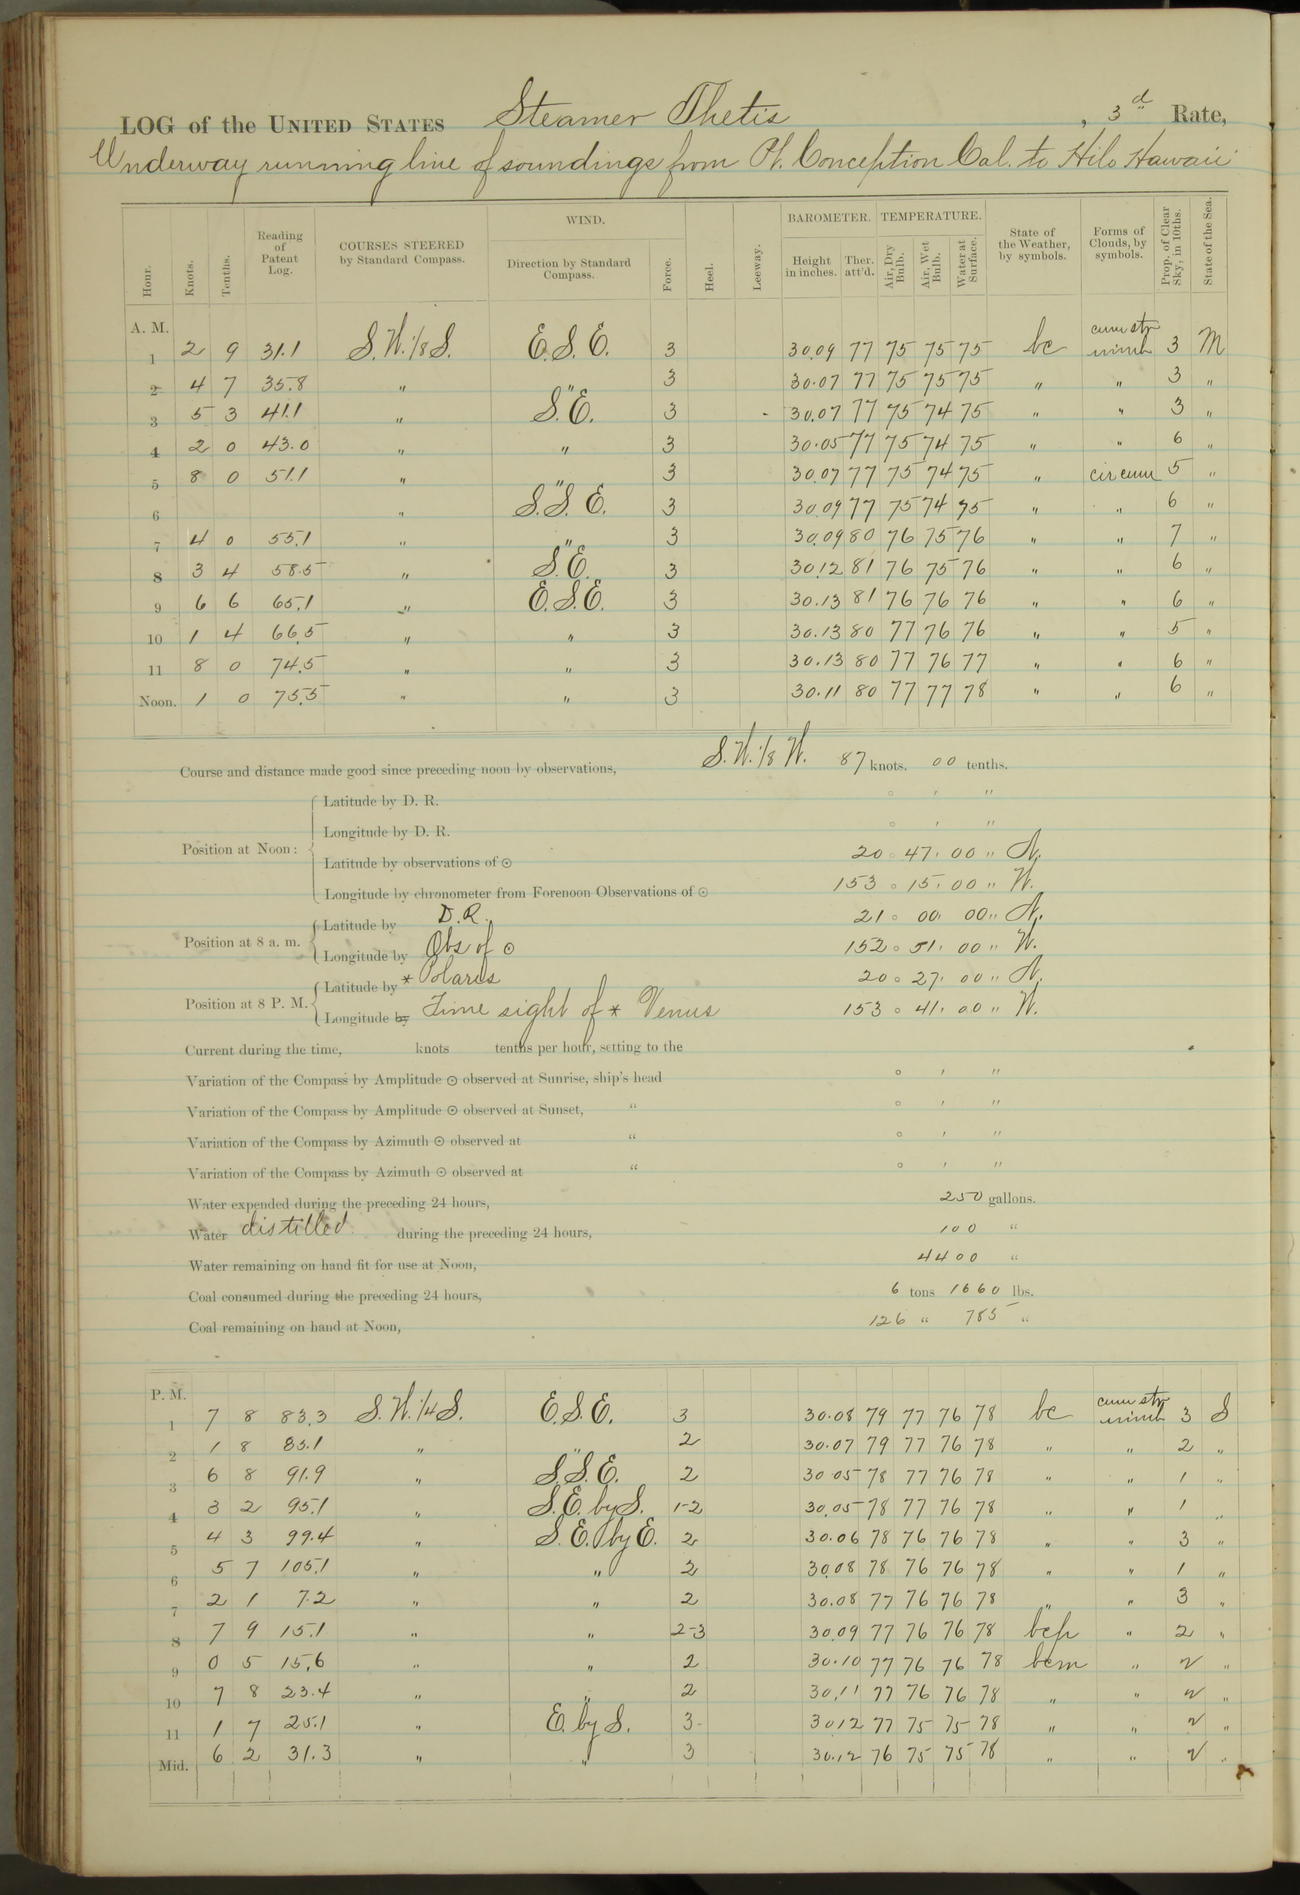 LOG of the UNITED STATES Steamer Thetis, 3d Rate,
Underway running line of soundings from Pt. Conception Cal. to Hilo Hawaii
Hour. Knots. Tenths. Reading of Patent Log. COURSES STEERED by Standard Compass. WIND. Direction by Standard Compass. Force. Heel. Leeway. BAROMETER. Height in inches. Ther. att'd. TEMPERATURE. Air, Dry Bulb. Air, Wet Bulb. Water at Surface. State of the Weather, by symbols. Forms of Clouds, by symbols. Prop. of Clear Sky, in 10ths. State of the Sea.
A. M.
1 2 9 31.1 S.W. 1/8 S. E.S.E. 3 30.09 77 75 75 75 bc cum str nimb 3 M
2 4 7 35.8 " " 3 30.07 77 75 75 75 " " 3 "
3 5 3 41.1 " S.E. 3 30.07 77 75 74 75 " " 3 "
4 2 0 43.0 " " 3 30.05 77 75 74 75 " " 6 "
5 8 0 51.1 " " 3 30.07 77 75 74 75 " cir cum 5 "
6 " S.S.E. 3 30.09 77 75 74 75 " " 6 "
7 4 0 55.1 " " 3 30.09 80 76 75 76 " " 7 "
8 3 4 58.5 " S.E. 3 30.12 81 76 75 76 " " 6 "
9 6 6 65.1 " E.S.E. 3 30.13 81 76 76 76 " " 6 "
10 1 4 66.5 " " 3 30.13 80 77 76 76 " " 5 "
11 8 0 74.5 " " 3 30.13 80 77 76 77 " " 6 "
Noon. 1 0 75.5 " " 3 30.11 80 77 77 78 " " 6 "
Course and distance made good since preceding noon by observations, S.W. 1/8 W. 87 knots. 00 tenths.
Position at Noon:
Latitude by D. R. ° ' "
Longitude by D. R. ° ' "
Latitude by observations of ⊙ 20 ° 47 ' 00 " N.
Longitude by chronometer from Forenoon Observations of ⊙ 153 ° 15 ' 00 " W.
Position at 8 a. m.
Latitude by D.R. 21 ° 00 ' 00 " N.
Longitude by Obs of ⊙ 152 ° 51 ' 00 " W.
Position at 8 P. M.
Latitude by * Polaris 20 ° 27 ' 00 " N.
Longitude by Time sight of * Venus 153 ° 41 ' 00 " W.
Current during the time, knots tenths per hour, setting to the
Variation of the Compass by Amplitude ⊙ observed at Sunrise, ship's head ° ' "
Variation of the Compass by Amplitude ⊙ observed at Sunset, " ° ' "
Variation of the Compass by Azimuth ⊙ observed at " ° ' "
Variation of the Compass by Azimuth ⊙ observed at " ° ' "
Water expended during the preceding 24 hours, 250 gallons.
Water distilled during the preceding 24 hours, 100 "
Water remaining on hand fit for use at Noon, 4400 "
Coal consumed during the preceding 24 hours, 6 tons 1660 lbs.
Coal remaining on hand at Noon, 126 " 785 "
P. M.
1 7 8 83.3 S.W. 1/4 S. E.S.E. 3 30.08 79 77 76 78 bc cum str nimb 3 S
2 1 8 85.1 " " 2 30.07 79 77 76 78 " " 2 "
3 6 8 91.9 " S.S.E. 2 30.05 78 77 76 78 " " 1 "
4 3 2 95.1 " S.E. by S. 1-2 30.05 78 77 76 78 " " 1 "
5 4 3 99.4 " S.E. by E. 2 30.06 78 76 76 78 " " 3 "
6 5 7 105.1 " " 2 30.08 78 76 76 78 " " 1 "
7 2 1 7.2 " " 2 30.08 77 76 76 78 " " 3 "
8 7 9 15.1 " " 2-3 30.09 77 76 76 78 bcp " 2 "
9 0 5 15.6 " " 2 30.10 77 76 76 78 bcm " 2 "
10 7 8 23.4 " " 2 30.11 77 76 76 78 " " 2 "
11 1 7 25.1 " E. by S. 3 30.12 77 75 75 78 " " 2 "
Mid. 6 2 31.3 " " 3 30.12 76 75 75 78 " " 2 "